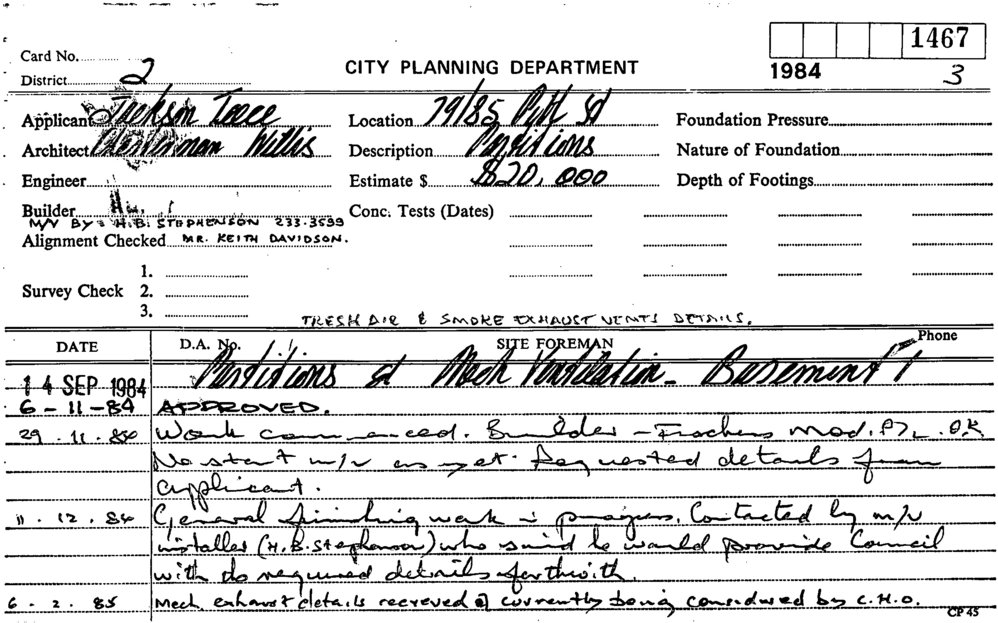 Card No.
District 2
CITY PLANNING DEPARTMENT
1467
1984 3
Applicant Jackson Teece
Location 79/85 Pitt St
Foundation Pressure
Architect Willis
Description Partitions
Nature of Foundation
Engineer
Estimate $ $20,000
Depth of Footings
Builder
Conc. Tests (Dates)
M/V BY: H.B. STEPHENSON 233.3599
Alignment Checked MR. KEITH DAVIDSON.
Survey Check 1.
2.
3.
FRESH AIR & SMOKE EXHAUST VENTS DETAILS.
DATE D.A. No. SITE FOREMAN Phone
14 SEP 1984 Partitions & Mech Ventilation - Basement 1
6-11-84 APPROVED.
29.11.84 Work commenced. Builder - Mod. P/L. O.K
No start m/v as yet. Requested details from
applicant.
11.12.84 General finishing work in progress. Contacted by m/v
installer (H.B. Stephenson) who said he would provide Council
with the required details forthwith.
6.2.85 Mech exhaust details recieved & currently being considered by C.H.O.
CP 45